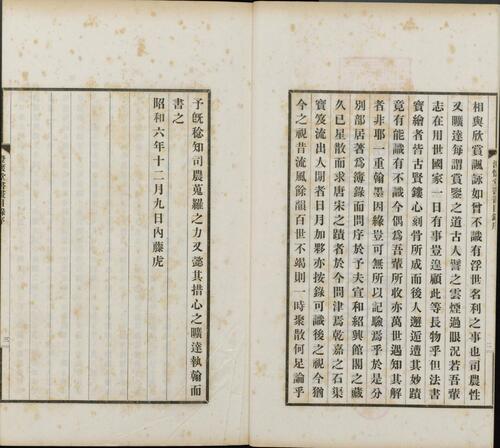 相與欣賞諷詠如曾不識有浮世名利之事也司農性
又曠達每謂賞鑒之道古人譬之雲煙過眼況若吾輩
志在用世國家一日有事豈遑顧此等長物乎但法書
寶繪者皆古賢鏤心刻骨所成而後人邂逅遭其妙蹟
竟有能識有不識今偶爲吾輩所收亦萬世遇知其解
者非耶一重翰墨因緣豈可無所以記驗爲乎於是分
別部居著爲簿錄而問序於予夫宣和紹興館閣之藏
久已星散而求唐宋之蹟者於今問津焉乾嘉之石渠
寶笈流出人間者日月加夥亦按錄可識後之視今猶
今之視昔流風餘韻百世不竭則一時聚散何足論乎
予旣稔知司農蒐羅之力又懿其措心之曠達執翰而
書之
昭和六年十二月九日內藤虎
三